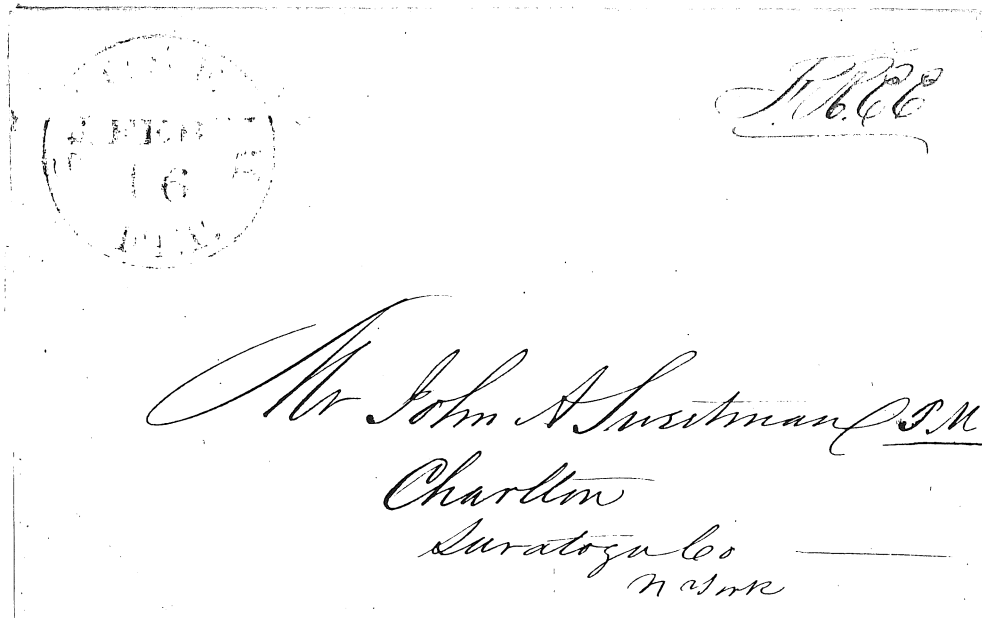 FREE
16
Mr John A Sweetman P.M
Charlton
Saratoga Co
N York